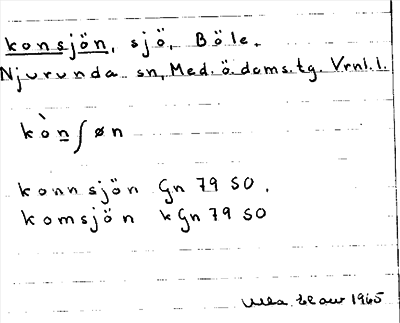 konsjön, sjö, Böle.
Njurunda sn, Med. ö. doms.tg. Vrnl.l.
kòn̲ʃøn
konnsjön Gn 79 SO.
komsjön kGn 79 SO
1965